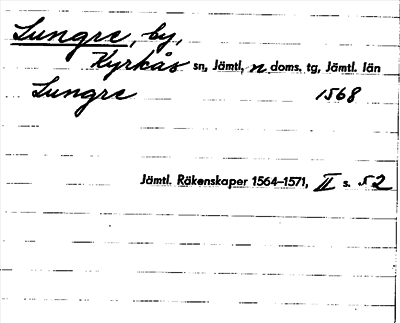 Lungre, by,
Kyrkås sn, Jämtl, n doms. tg, Jämtl. län
Lungre 1568
Jämtl. Räkenskaper 1564–1571, II s. 52